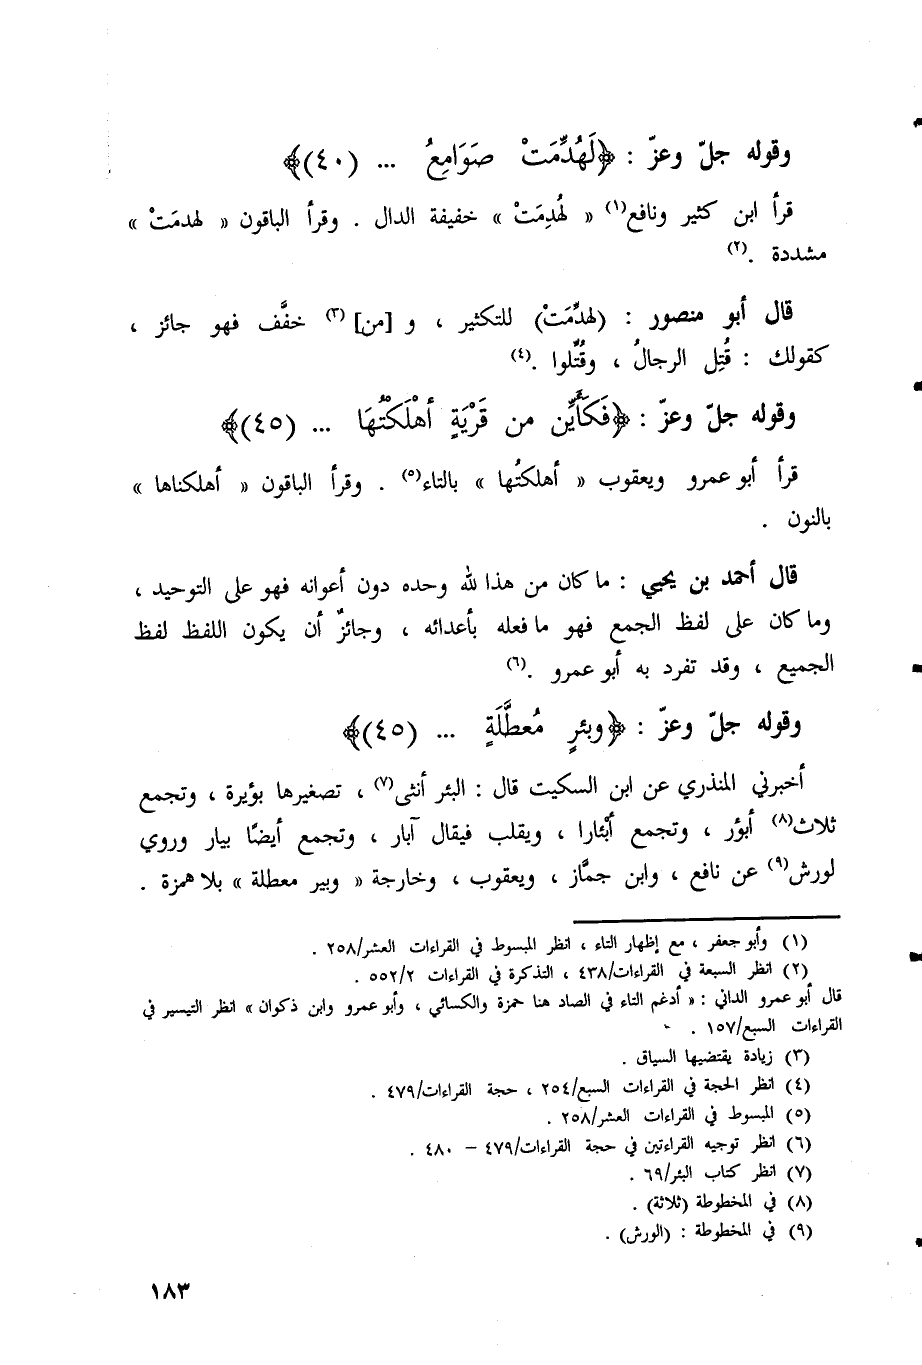 وقوله جلّ وعزّ : ﴿لَهُدِّمَتْ صَوَامِعُ ... (٤٠)﴾
قرأ ابن كثير ونافع(١) « لهُدِمَتْ » خفيفة الدال . وقرأ الباقون « لهدمَتْ »
مشددة .(٢)
قال أبو منصور : (لهدِّمَتْ) للتكثير ، و [من] (٣) خفَّف فهو جائز ،
كقولك : قُتِل الرجالُ ، وقُتِّلوا .(٤)
وقوله جلّ وعزّ : ﴿فَكَأَيِّن من قَرْيَةٍ أهْلَكْتُهَا ... (٤٥)﴾
قرأ أبو عمرو ويعقوب « أهلكتُها » بالتاء(٥) . وقرأ الباقون « أهلكناها »
بالنون .
قال أحمد بن يحيي : ما كان من هذا لله وحده دون أعوانه فهو على التوحيد ،
وما كان على لفظ الجمع فهو ما فعله بأعدائه ، وجائزٌ أن يكون اللفظ لفظ
الجميع ، وقد تفرد به أبو عمرو .(٦)
وقوله جلّ وعزّ : ﴿وبئرٍ مُعطَّلَةٍ ... (٤٥)﴾
أخبرني المنذري عن ابن السكيت قال : البئر أنثى(٧) ، تصغيرها بؤيرة ، وتجمع
ثلاث(٨) أبوُر ، وتجمع أبْئارا ، ويقلب فيقال آبار ، وتجمع أيضًا بيار وروي
لورش(٩) عن نافع ، وابن جمَّاز ، ويعقوب ، وخارجة « وبير معطلة » بلا همزة .
(١) وأبو جعفر ، مع إظهار التاء ، انظر المبسوط في القراءات العشر/٢٥٨ .
(٢) انظر السبعة في القراءات/٤٣٨ ، التذكرة في القراءات ٥٥٢/٢ .
قال أبو عمرو الداني : « أدغم التاء في الصاد هنا حمزة والكسائي ، وأبو عمرو وابن ذكوان » انظر التيسير في
القراءات السبع/١٥٧ .
(٣) زيادة يقتضيها السياق .
(٤) انظر الحجة في القراءات السبع/٢٥٤ ، حجة القراءات/٤٧٩ .
(٥) المبسوط في القراءات العشر/٢٥٨ .
(٦) انظر توجيه القراءتين في حجة القراءات/٤٧٩ – ٤٨٠ .
(٧) انظر كتاب البئر/٦٩ .
(٨) في المخطوطة (ثلاثة) .
(٩) في المخطوطة : (الورش) .
١٨٣